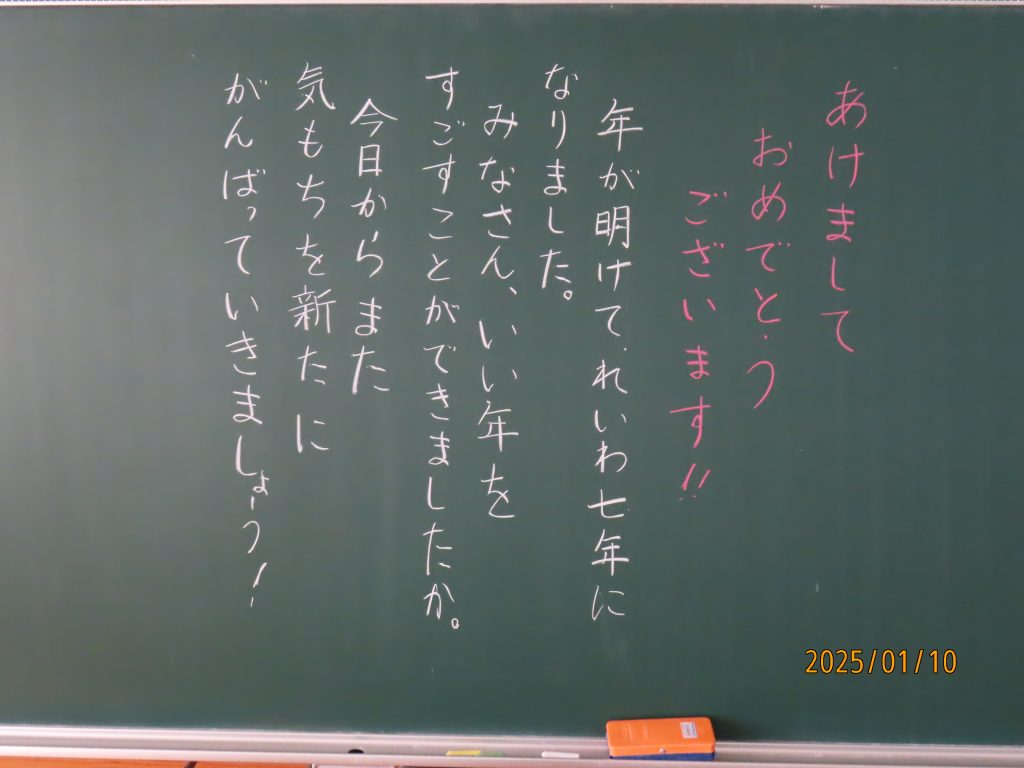 あけまして
おめでとう
ございます!!
年が明けて、れいわ七年に
なりました。
みなさん、いい年を
すごすことができましたか。
今日からまた
気もちを新たに
がんばっていきましょう!
2025/01/10